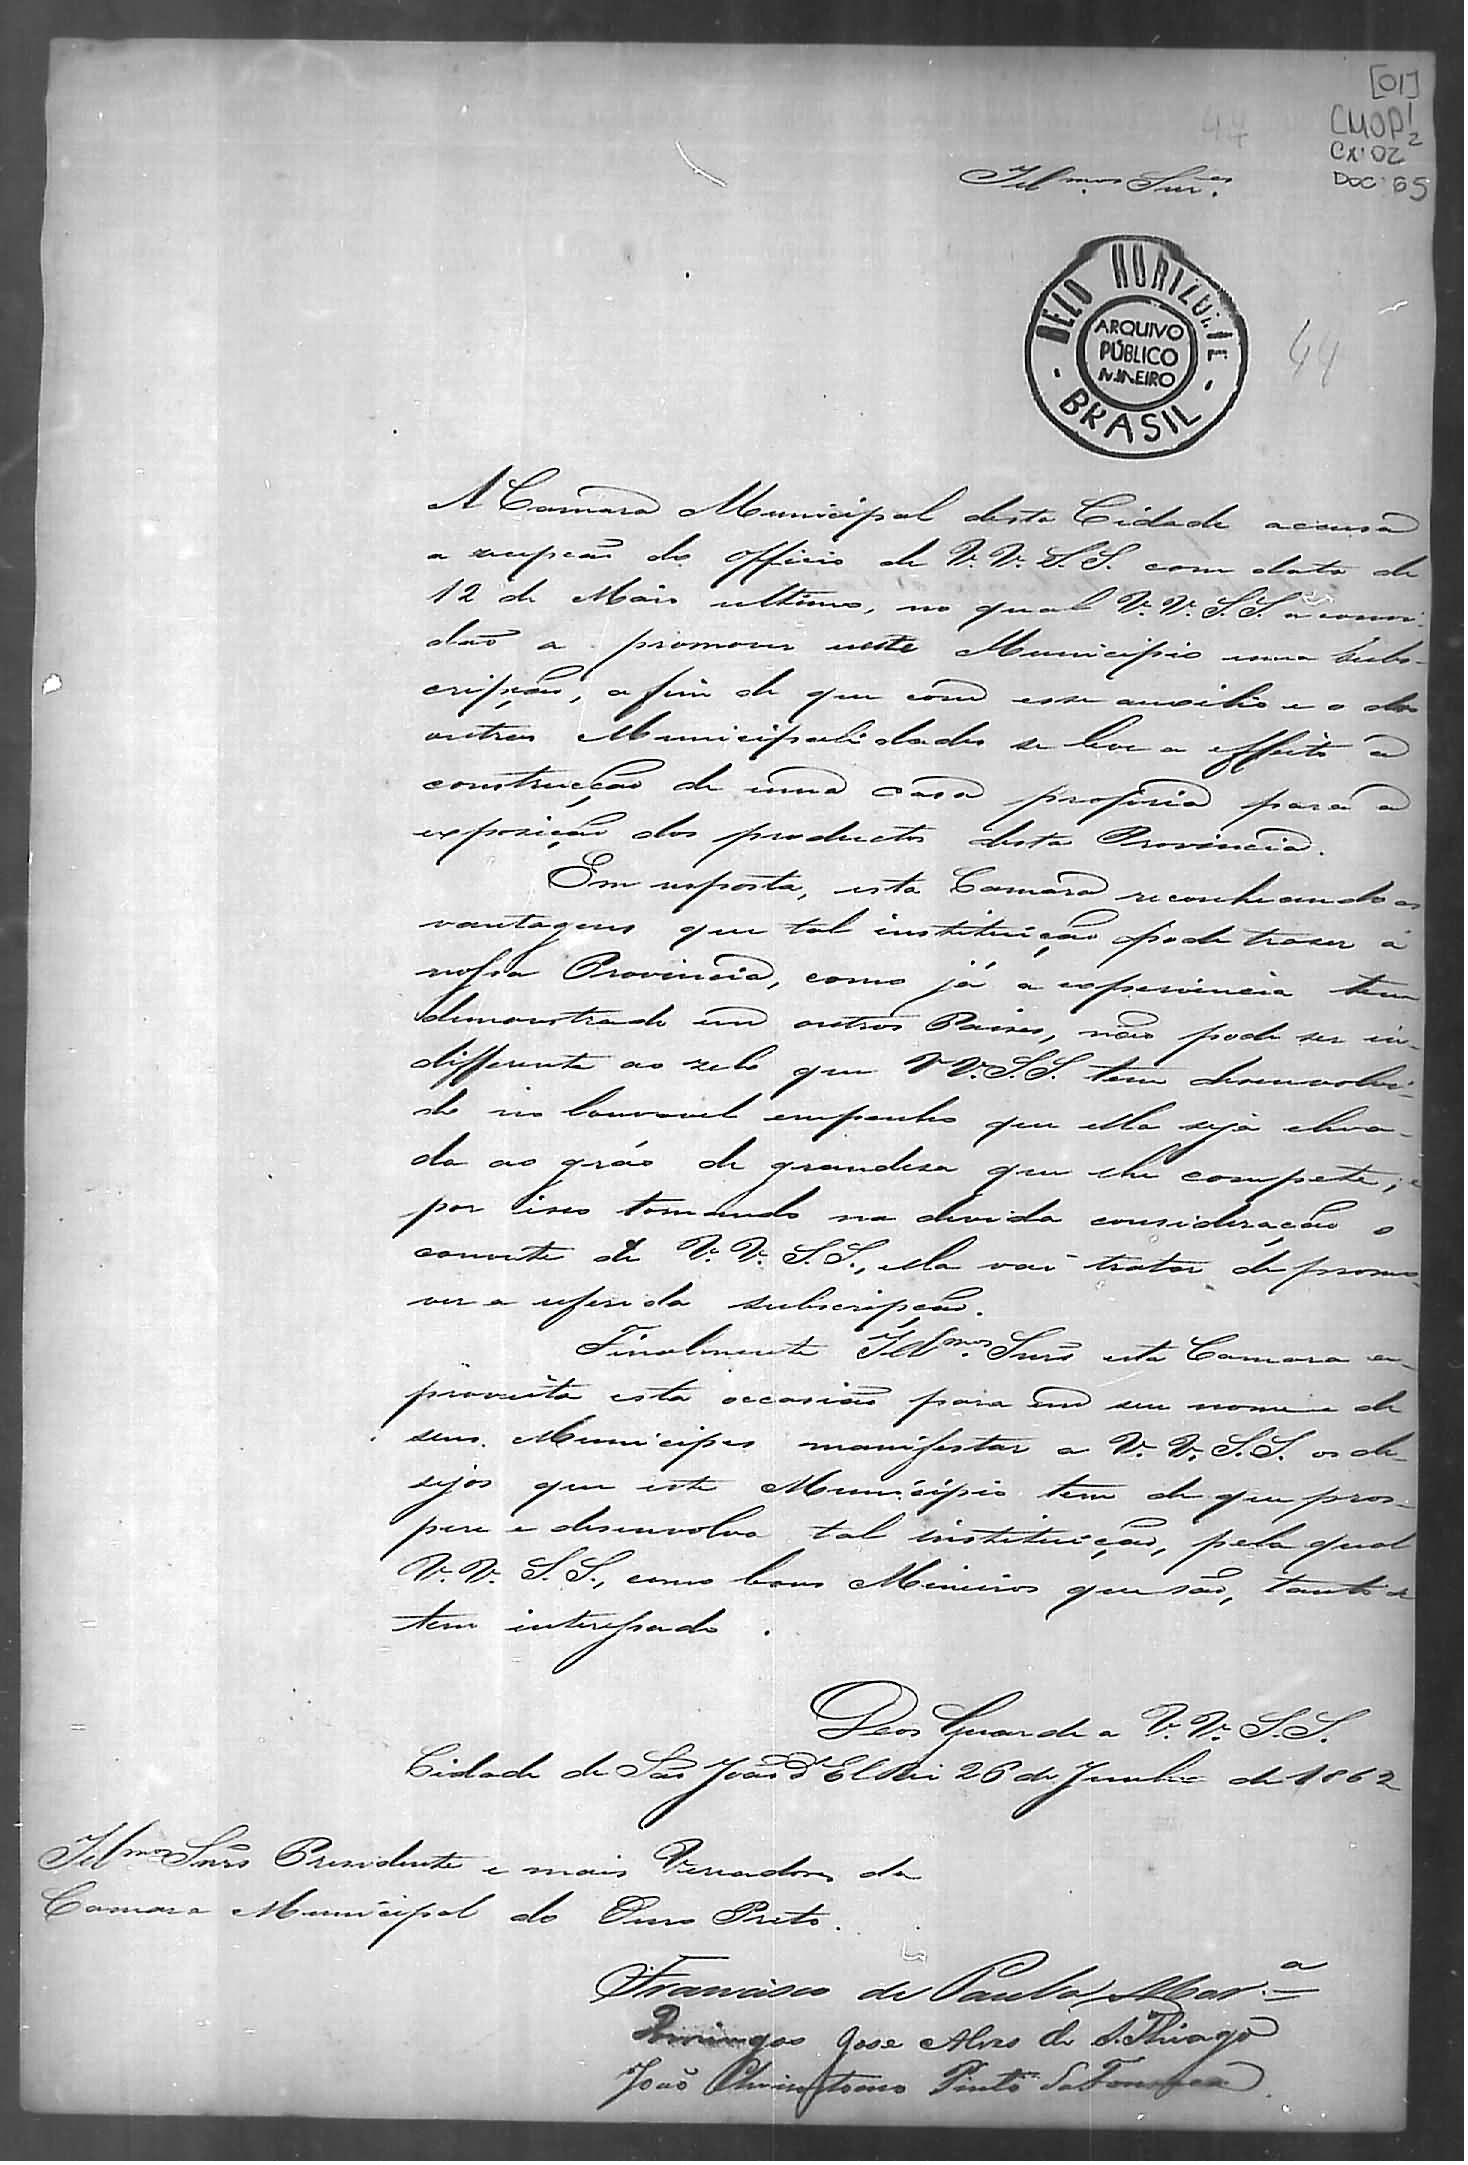 [01]
CMOP 1/2
Cx: 02
Doc: 65
44
Illmos. Snres.
BELO HORIZONTE
ARQUIVO
PÚBLICO
MINEIRO
BRASIL
44
A Camara Municipal desta Cidade accusa
a recepção do officio de V.V. S.S. com data de
12 de Maio ultimo, no qual V.V. S.S. a convi-
dão a promover neste Municipio uma subs-
cripção, a fim de que com esse auxilio e o das
outras Municipalidades se leve a effeito a
construcção de uma casa propria para a
exposição dos productos desta Provincia.
Em resposta, esta Camara reconhecendo as
vantagens que tal instituição pode traser á
nossa Provincia, como já a experiencia tem
demonstrado em outros Paises, não pode ser in-
differente ao zelo que V.V. S.S. tem desenvolvi-
do no louvavel empenho que ella seja eleva-
da ao gráo de grandesa que lhe compete; e
por isso tomando na devida consideração o
convite de V.V. S.S., ella vai tratar de promo-
ver a referida subscripção.
Finalmente Illmos. Snrs esta Camara a-
proveita esta occasião para em seu nome e de
seus Municipes manifestar a V.V. S.S. os de-
sejos que este Municipio tem de que pros-
pere e desenvolva tal instituição, pela qual
V.V. S.S., como bons Mineiros que são, tanto se
tem interessado.
Deos Guarde a V.V. S.S.
Cidade de São João d'El Rei 26 de Junho de 1862
Illmos Snrs Presidente e mais Vereadores da
Camara Municipal do Ouro Preto.
Francisco de Paula
Domingos José Alves de S. Thiago
João Chrisostomo Pinto da Fonseca